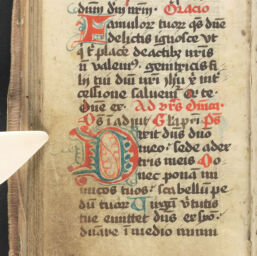 dnm̄ dn̄m nr̄m. Oracio
Famulor tuor qs dn̄e
delictis ignosce vt
q t̄ place de actibꝫ nr̄is
n̄ valem⁹. genitricis fi
lij tui dn̄i nr̄i ihū x̄ int̄
cessione saluem̄ Qr te
Dne ex. Ad vr̄s Omīa.
Ds ī adiut Glapri Ps
Dixit dn̄s dno
meo: sede a dex
tris meis Do
nec ponā ini
micos tuos: scabellū pe
dū tuor Virgam v̄tutis
tue emittet dn̄s ex syon:
dn̄are ī medio inimi